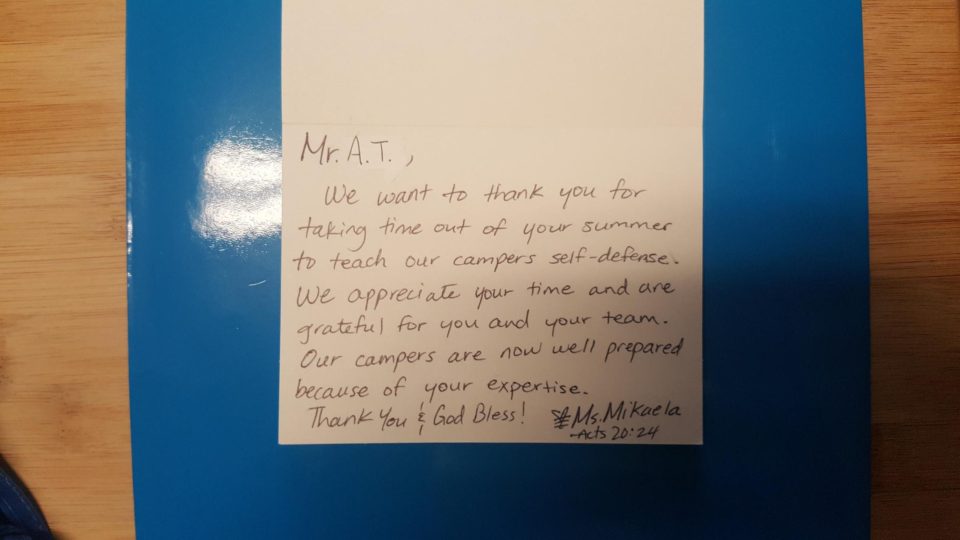 Mr. A.T. ,
We want to thank you for
taking time out of your summer
to teach our campers self-defense.
We appreciate your time and are
grateful for you and your team.
Our campers are now well prepared
because of your expertise.
Thank You & God Bless! Ms. Mikaela
-Acts 20:24